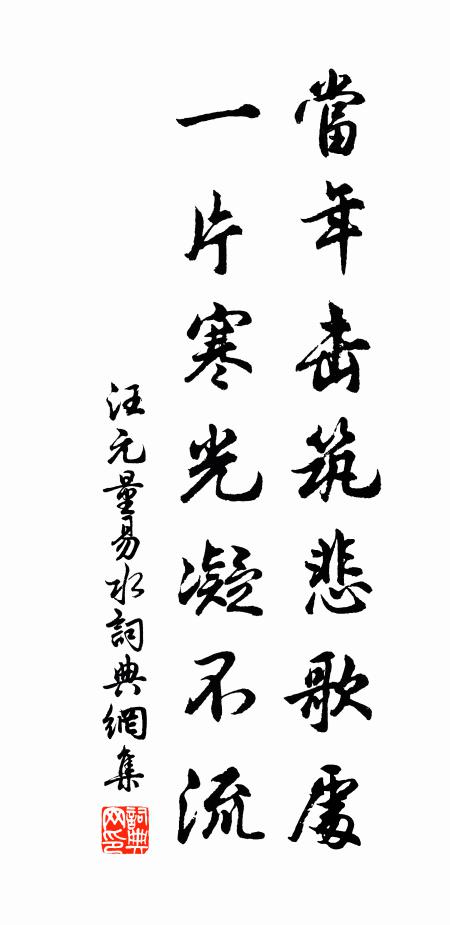 當年击筑悲歌處
一片寒光凝不流
汪元量易水詞典網集
詞典网印